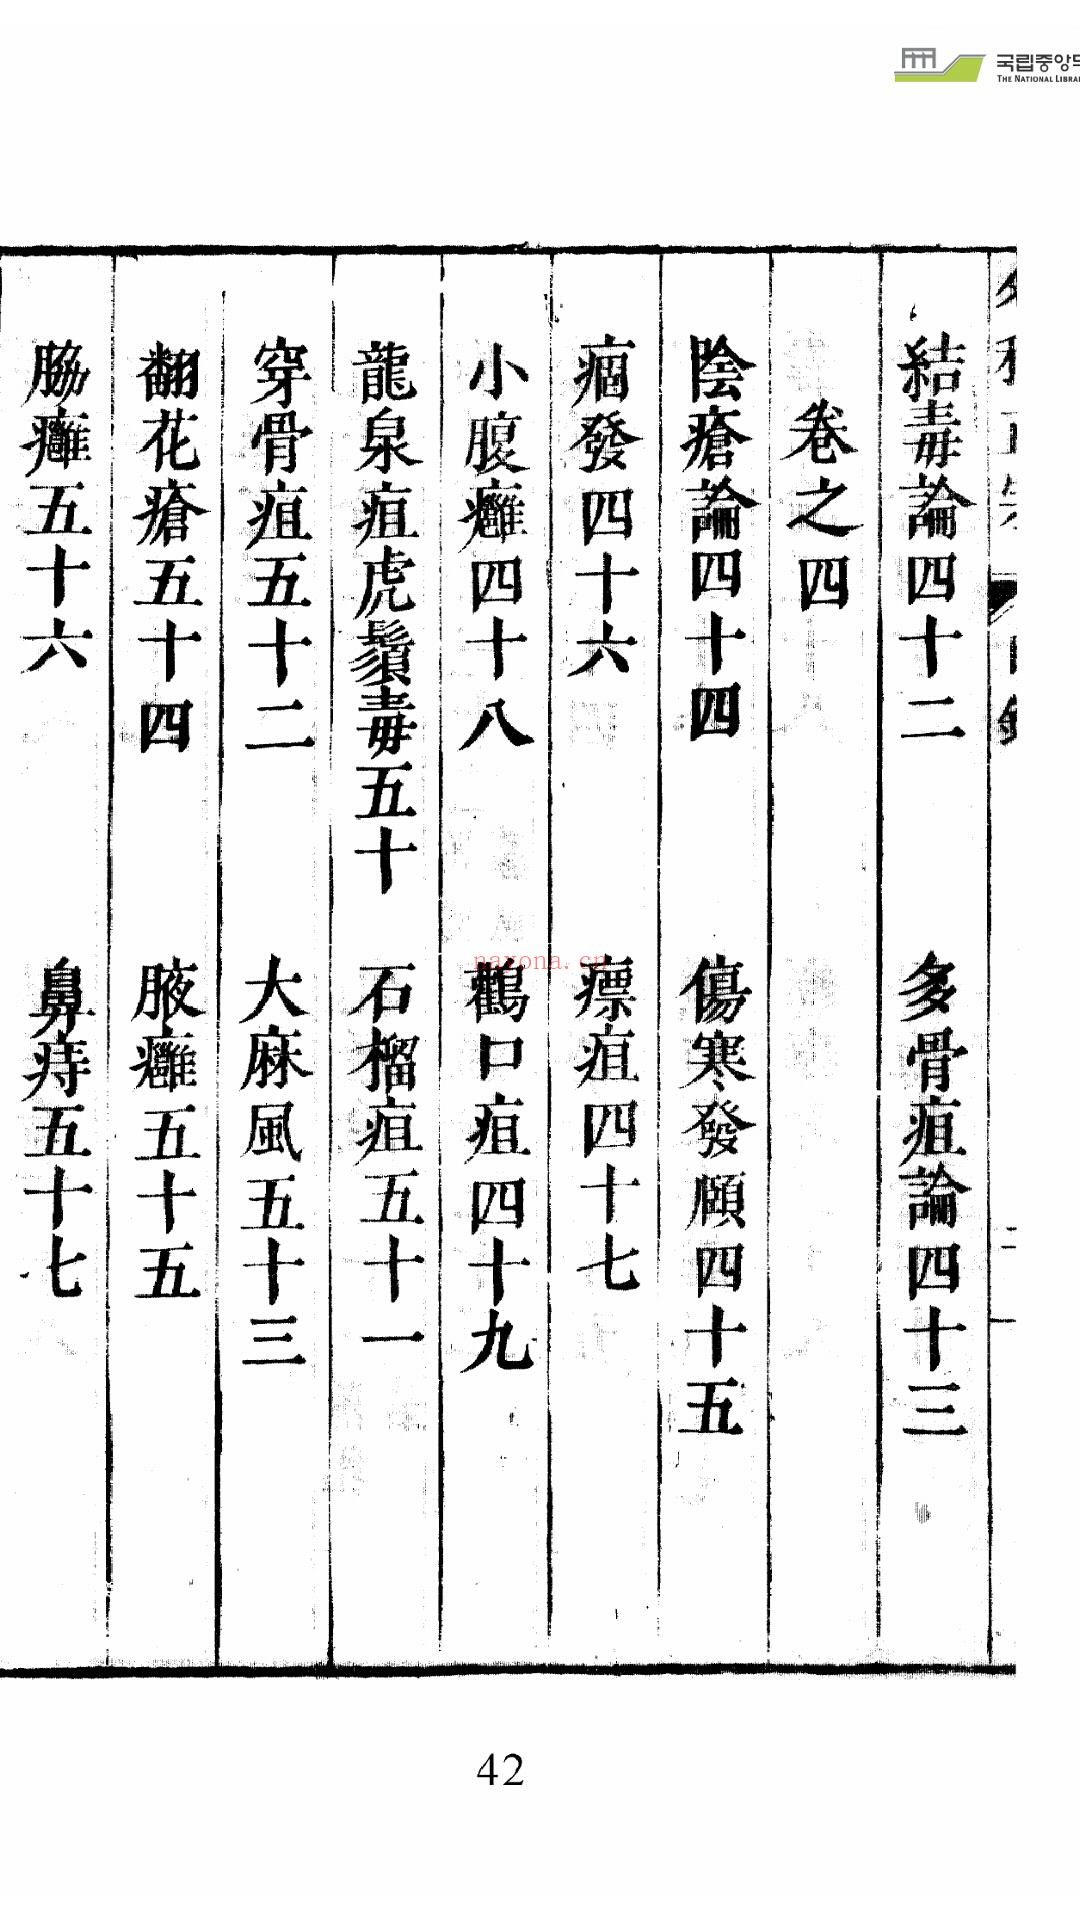 국립중앙도
THE NATIONAL LIBRA
結毒論四十二 多骨疽論四十三
卷之四
陰瘡論四十四 傷寒發頥四十五
㾌發四十六 瘭疽四十七
小腹癰四十八 鸛口疽四十九
龍泉疽虎鬚毒五十 石榴疽五十一
穿骨疽五十二 大麻風五十三
翻花瘡五十四 腋癰五十五
脇癰五十六 鼻痔五十七
nayona.cn
42